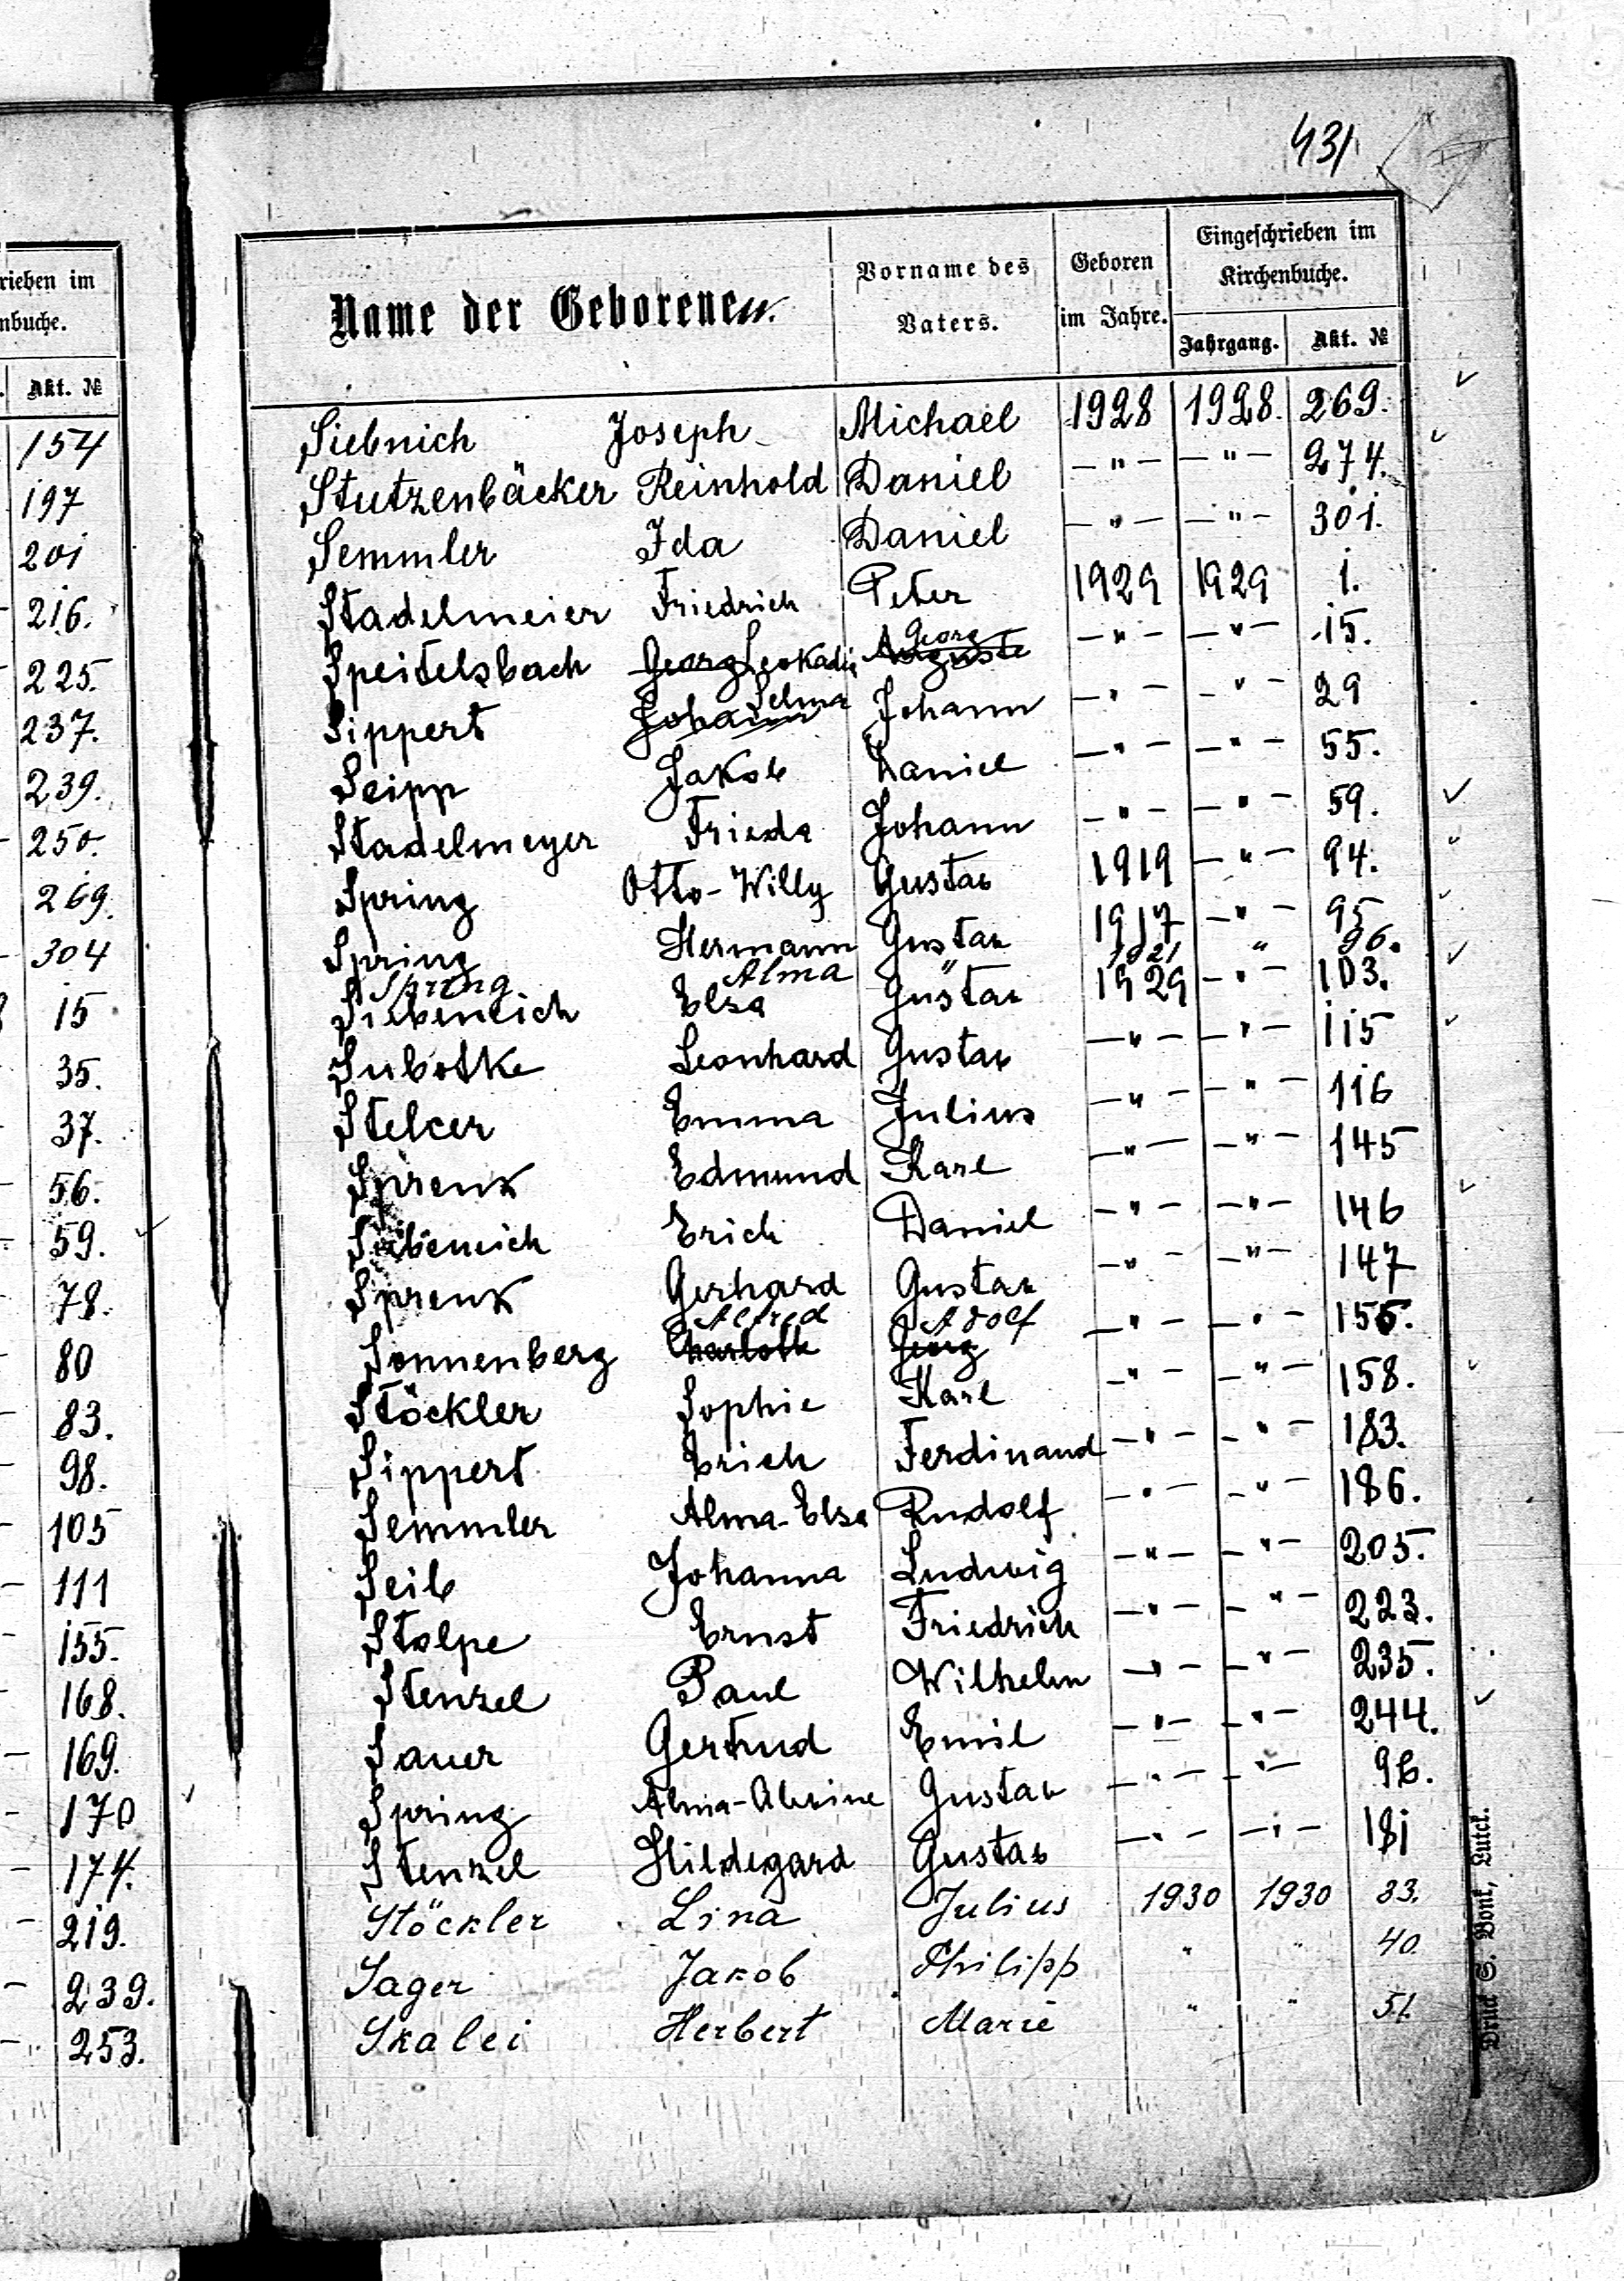 431
rieben im
nbuche.
Akt. №
154
197
201
216.
225.
237.
239.
250.
269.
304
15
35.
37.
56.
59.
78.
80
83.
98.
105
111
155.
168.
169.
170
174.
219.
239.
253.
Name der Geborenen.
Vorname des Vaters.
Geboren im Jahre.
Eingeschrieben im Kirchenbuche.
Jahrgang. Akt. №
Siebnich Joseph Michael 1928 1928. 269.
Stutzenbäcker Reinhold Daniel —"— —"— 274.
Semmler Ida Daniel —"— —"— 301.
Stadelmeier Friedrich Peter 1929 1929 1.
Georg
Speitelsbach Georg Leokadie Auguste —"— —"— 15.
Selma
Sippert Johann Johann —"— —"— 29
Seipp Jakob Daniel —"— —"— 55.
Stadelmeyer Frieda Johann —"— —"— 59.
Spring Otto-Willy Gustav 1919 —"— 94.
Spring Hermann Gustav 1917 —"— 95
Spring Alma " 1921 " 96.
Siebeneich Elsa Gustav 1929 —"— 103.
Subotke Leonhard Gustav —"— —"— 115
Stelcer Emma Julius —"— —"— 116
Sprenk Edmund Karl —"— —"— 145
Siebeneich Erich Daniel —"— —"— 146
Sprenk Gerhard Gustav —"— —"— 147
Alfred Adolf
Sonnenberg Charlotte Georg —"— —"— 155.
Stöckler Sophie Karl —"— —"— 158.
Sippert Erich Ferdinand —"— —"— 183.
Semmler Alma-Elsa Rudolf —"— —"— 186.
Seib Johanna Ludwig —"— —"— 205.
Stolpe Ernst Friedrich —"— —"— 223.
Stenzel Paul Wilhelm —"— —"— 235.
Sauer Gertrud Emil —"— —"— 244.
Spring Alma- Gustav —"— —"— 96.
Stenzel Hildegard Gustav —"— —"— 181
Stöckler Lina Julius 1930 1930 33.
Sager Jakob Philipp " " 40.
Skalei Herbert Marie " " 51.
Druck S. Bonk, Łutck.